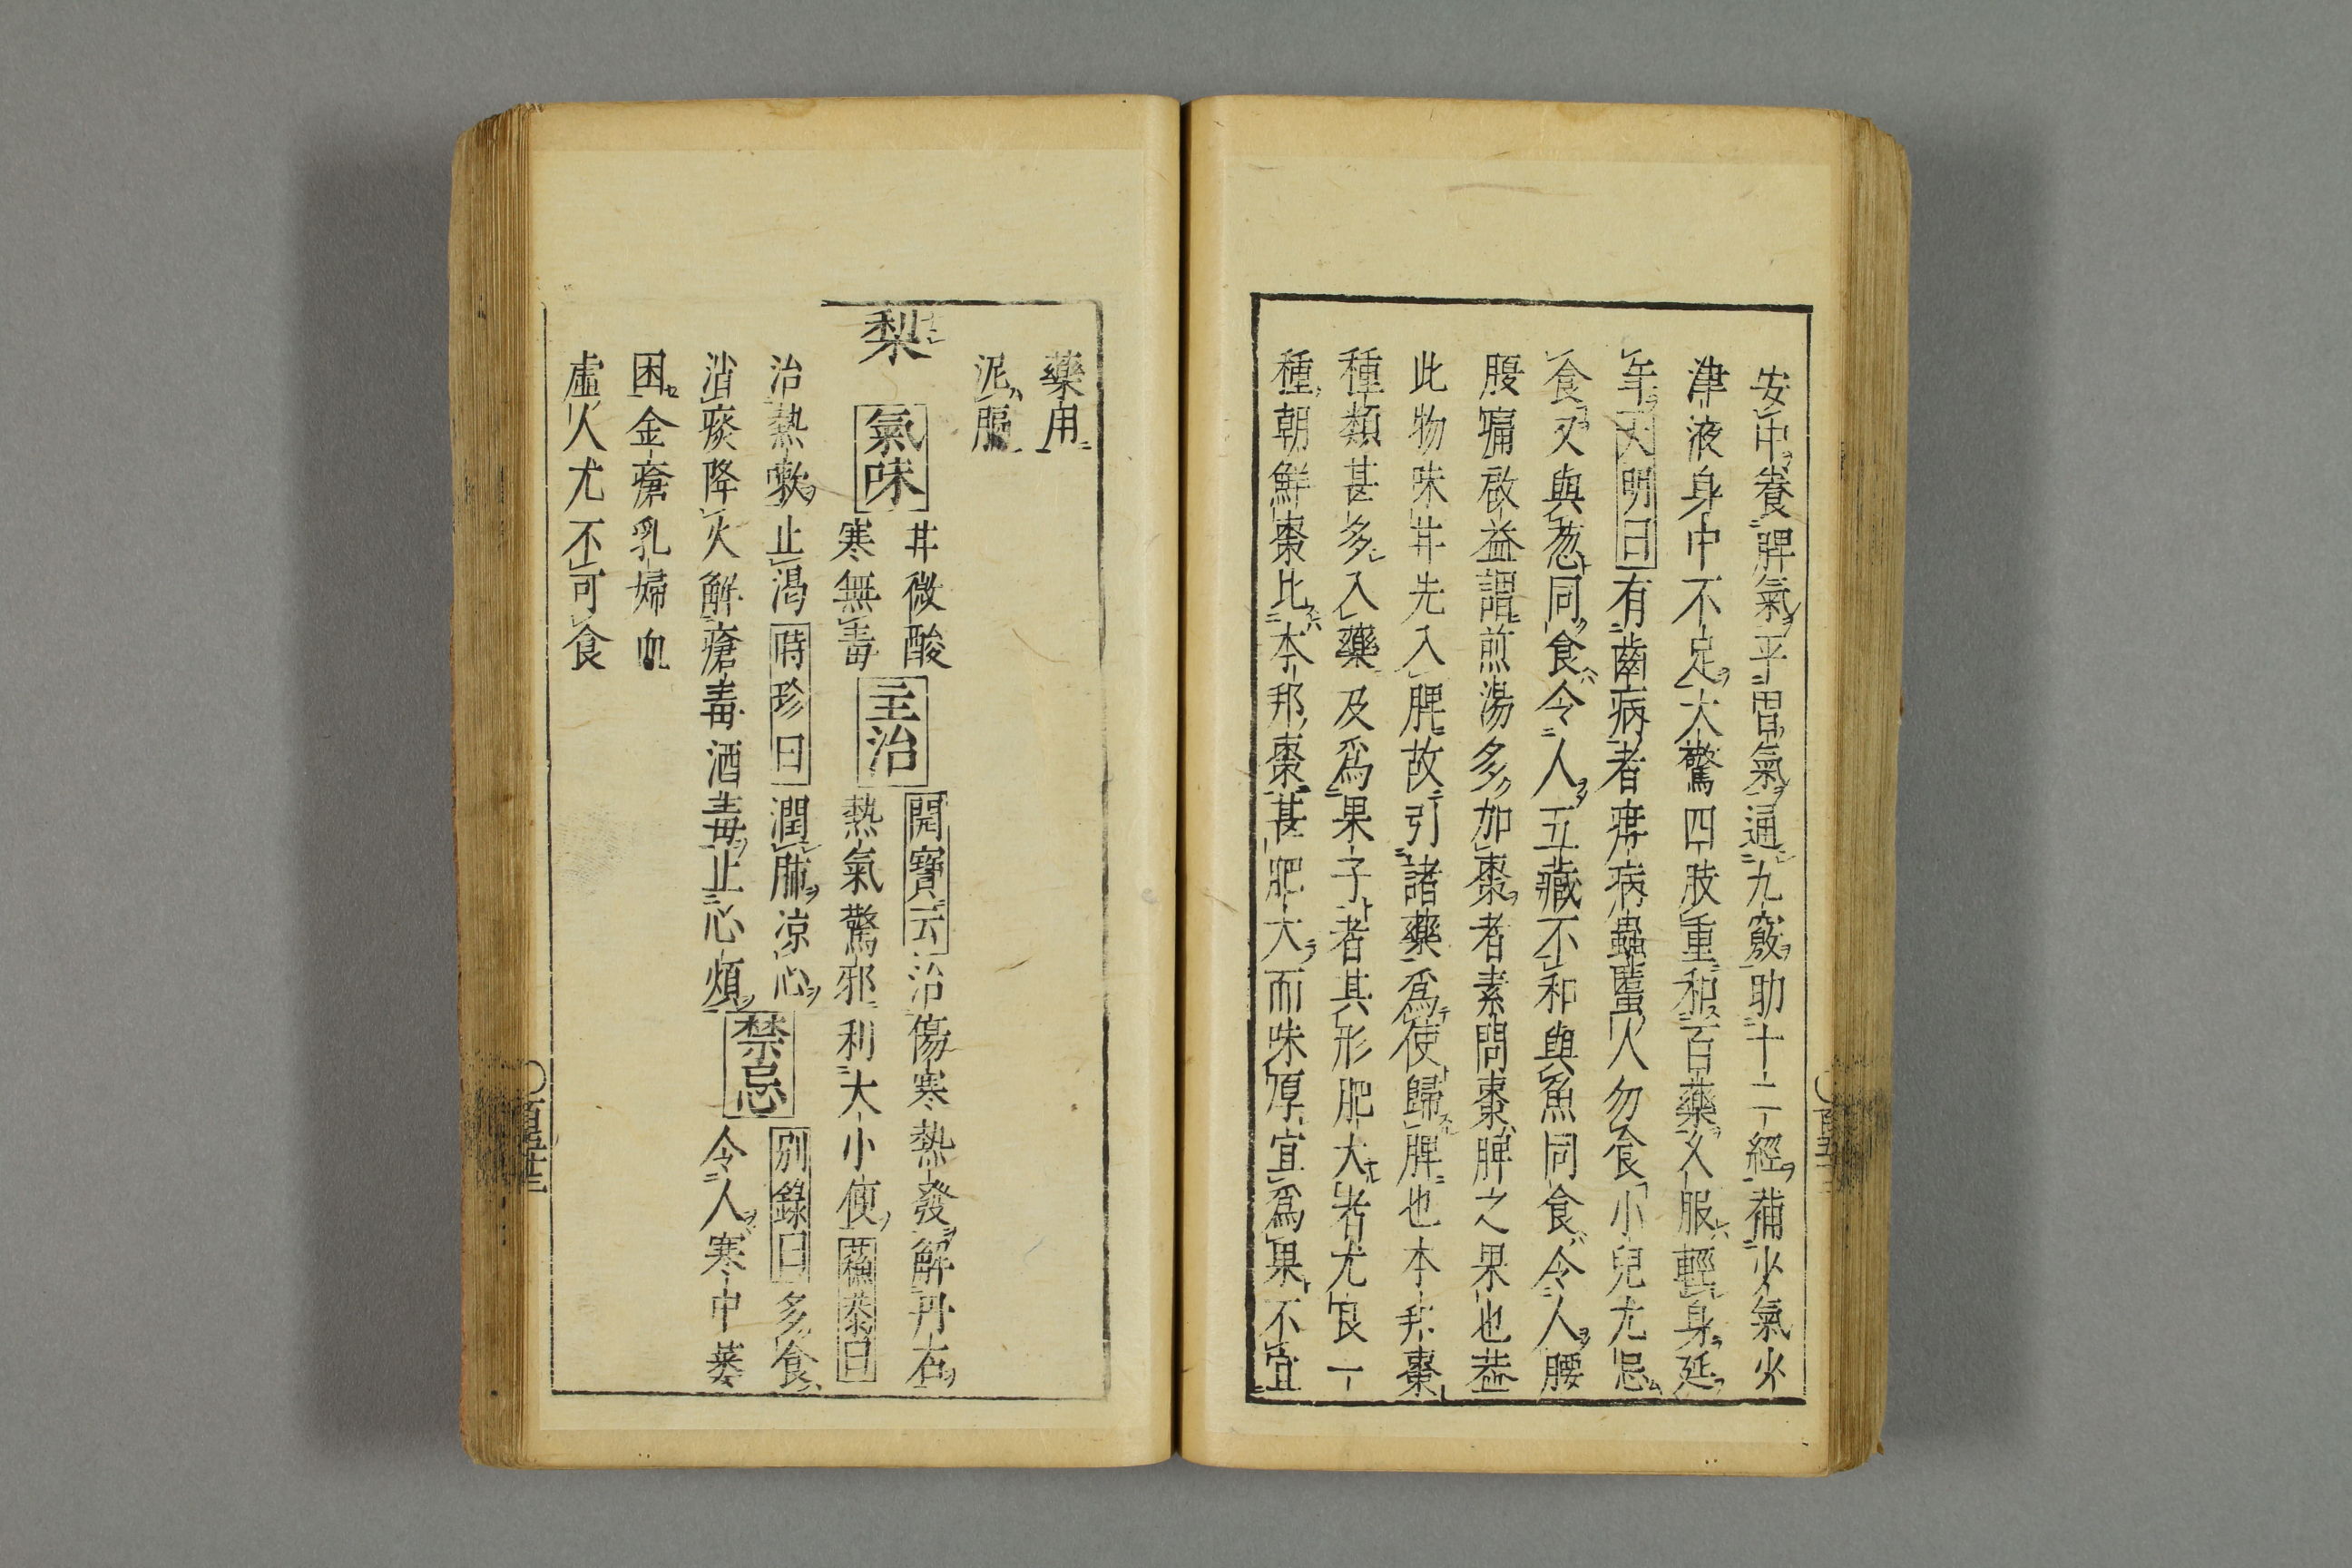 安中養脾氣平胃氣通九竅助十二經補少氣少
津液身中不足大驚四肢重和百藥久服輕身延
年大明曰有齒病者疳病蟲䘌人勿食小兒尤忌
食又與葱同食令人五藏不和與魚同食令人腰
腹痛啟益謂煎湯多加棗者素問棗脾之果也葢
此物味甘先入脾故引諸藥爲使歸脾也本邦棗
種類甚多入藥及爲果子者其形肥大者尤良一
種朝鮮棗比本邦棗甚肥大而味厚宜爲果不宜
藥用
泥膈
梨
氣味
甘微酸
寒無毒
主治
開寶云治傷寒熱發解丹石
熱氣驚邪利大小便蘓恭曰
治熱嗽止渴時珍曰潤肺凉心
消痰降火解瘡毒酒毒止心煩
禁忌
別錄曰多食
令人寒中萎
困金瘡乳婦血
虛人尤不可食